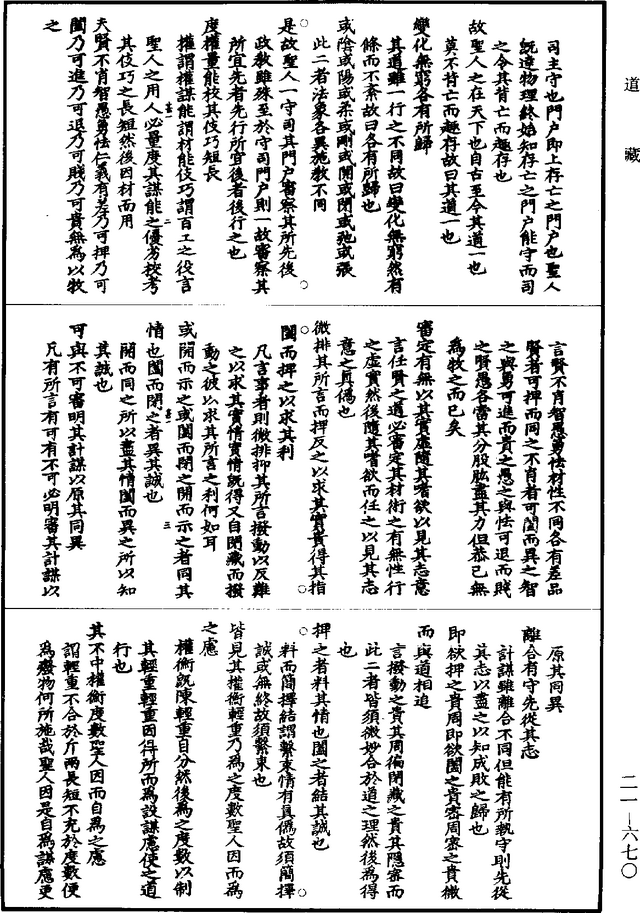 道藏
司主守也門戶即上存亡之門戶也聖人
既達物理終始知存亡之門戶能守而司
之令其背亡而趣存也
故聖人之在天下也自古至今其道一也
莫不背亡而趣存故曰其道一也
變化無窮各有所歸
其道雖一行之不同故曰變化無窮然有
條而不紊故曰各有所歸也
或陰或陽或柔或剛或開或閉或弛或張
此二者法象各異施教不同
是故聖人一守司其門戶審察其所先後
政教雖殊至於守司門戶則一故審察其
所宜先者先行所宜後者後行之也
度權量能校其伎巧短長
權謂權謀能謂材能伎巧謂百工之役言
聖人之用人必量度其謀能之優劣校考
其伎巧之長短然後因材而用
夫賢不肖智愚勇怯仁義有差乃可捭乃可
闔乃可進乃可退乃可賤乃可貴無為以牧
之
言賢不肖智愚勇怯材性不同各有差品
賢者可捭而同之不肖者可闔而異之智
之與勇可進而貴之愚之與怯可退而賤
之賢愚各當其分股肱盡其力但恭己無
為牧之而已矣
審定有無以其實虛隨其嗜欲以見其志意
言任賢之道必審定其材術之有無性行
之虛實然後隨其嗜欲而任之以見其志
意之真偽也
微排其所言而捭反之以求其實貴得其指
闔而捭之以求其利
凡言事者則微排抑其所言撥動以反難
之以求其實情實情既得又自閉藏而撥
動之彼以求其所言之利何如耳
或開而示之或闔而閉之開而示之者同其
情也闔而閉之者異其誠也
開而同之所以盡其情闔而異之所以知
其誠也
可與不可審明其計謀以原其同異
凡有所言有可有不可必明審其計謀以
原其同異
離合有守先從其志
計謀雖離合不同但能有所執守則先從
其志以盡之以知成敗之歸也
即欲捭之貴周即欲闔之貴密周密之貴微
而與道相追
言撥動之貴其周徧閉藏之貴其隱密而
此二者皆須微妙合於道之理然後為得
也
捭之者料其情也闔之者結其誠也
料而簡擇結謂繫束情有真偽故須簡擇
誠或無終故須繫束也
皆見其權衡輕重乃為之度數聖人因而為
之慮
權衡既陳輕重自分然後為之度數以制
其輕重輕重因得所而為設謀慮使之道
行也
其不中權衡度數聖人因而自為之慮
謂輕重不合於斤兩長短不充於度數便
為廢物何所施哉聖人因是自為謀慮更
二一—六七〇